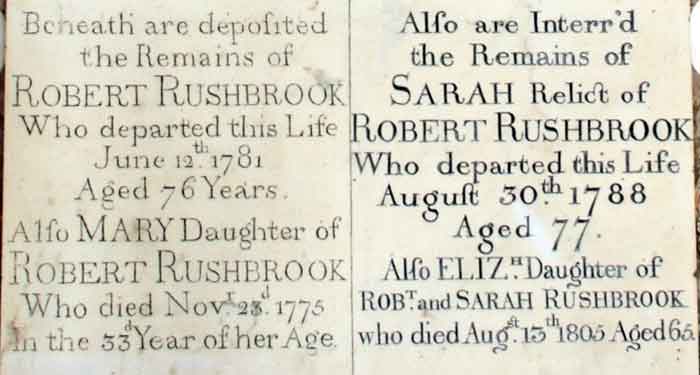 Beneath are depoſited
the Remains of
ROBERT RUSHBROOK
Who departed this Life
June 12th. 1781
Aged 76 Years.
Alſo MARY Daughter of
ROBERT RUSHBROOK
Who died Novr. 23d. 1775
In the 33d Year of her Age.
Alſo are Interr'd
the Remains of
SARAH Relict of
ROBERT RUSHBROOK
Who departed this Life
Auguſt 30th. 1788
Aged 77.
Alſo ELIZH. Daughter of
ROBT. and SARAH RUSHBROOK
who died Augſt. 13th 1805 Aged 65